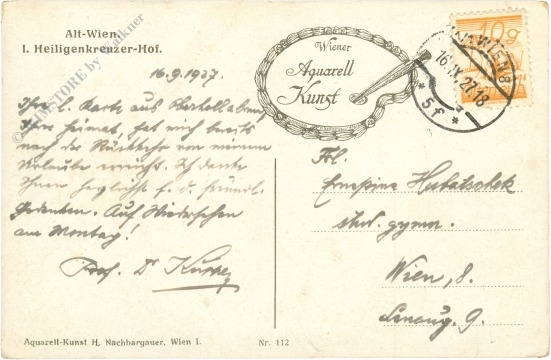 Alt-Wien.
I. Heiligenkreuzer-Hof.
16.9.1927.
Ihre l. Karte aus
Ihrer Heimat, hat mich bereits
nach der Rückkehr von meinem
Urlaube erreicht. Ich danke
Ihnen herzlichst f. d. freundl.
Gedenken. Auf Wiedersehen
am Montag!
Prof. Dr
Aquarell-Kunst H. Nachbargauer, Wien I.
Nr. 112
Wiener
Aquarell
Kunst
WIEN 8
16.IX.27.18
* 5f *
10g
Frl.
Hubatschek
stud. gymn.
Wien, 8.
Lenaug. 9.